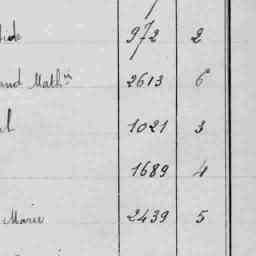 972 2
and Mathn 2613 6
1021 3
1689 4
Marie 2439 5